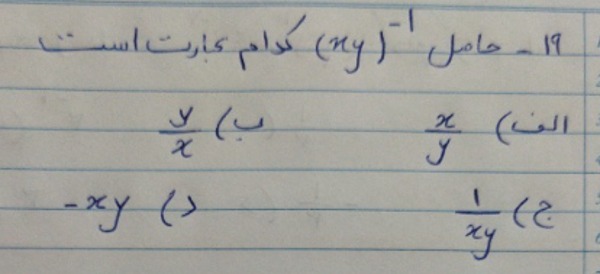 ۱۹- حاصل (xy)⁻¹ کدام عبارت است
الف) x/y ب) y/x
ج) 1/xy د) -xy